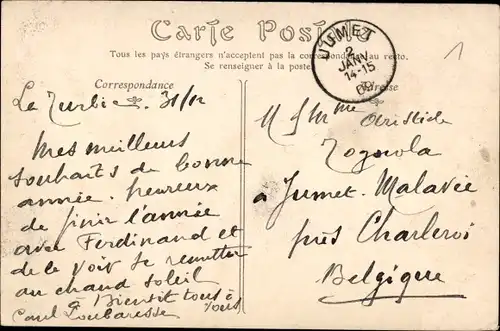 Carte Postale
Tous les pays étrangers n'acceptent pas la correspondance au recto.
Se renseigner à la poste.
JUMET
2
JANV
14-15
09
1
Correspondance
Adresse
La Turbie. 31/12
Mes meilleurs
souhaits de bonne
année. heureux
de finir l'année
avec Ferdinand et
de le voir se remettre
au chaud soleil
à Bientôt tous à
vous
Paul
M & Mme Aristide
à Jumet. Malavée
près Charleroi
Belgique